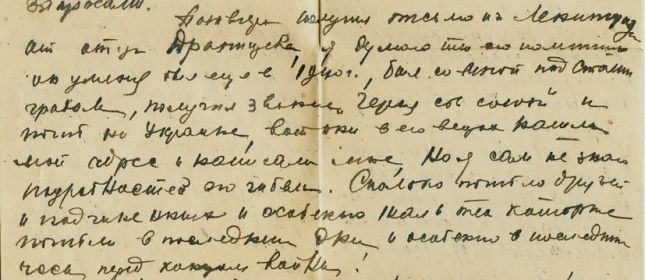 запросам.
получил письмо из Ленинграда
от отца Драгунского, я думаю ты его помнишь
он у меня был еще в 194 г., был со мной под Сталин
градом, получил звание "Героя сов союза" и
погиб на Украине, вот они в его вещах нашли
мой адрес и написали мне, Но я сам не знаю
подробностей его гибели. Сколько погибло друзей
и подчиненных и особенно жаль тех которые
погибли в последние дни и особенно в последние
часы перед концом войны!